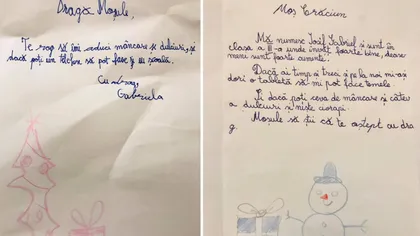 Dragă Moșule,
Te rog să îmi aduci mâncare și dulciuri, și
dacă poți un telefon să pot face și eu școală.
Cu drag,
Gabriela
Moș Crăciun
Mă numesc Ioil Gabriel și sunt în
clasa a III-a unde învăț foarte bine, dease
meni sunt foarte cuminte.
Dacă ai timp și treci și pe la noi mi-aș
dori o tabletă să mi pot face temele.
Și dacă poți ceva de mâncare și câtev
a dulciuri și niște ciorapi.
Moșule să știi că te aștept cu dra
g.